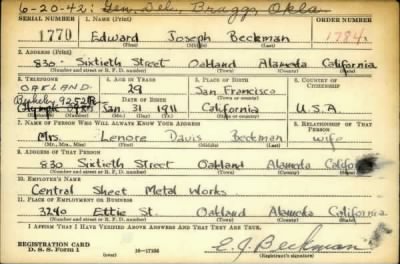 6-20-42: Gen. Del., Braggs, Okla
SERIAL NUMBER 1. NAME (Print) ORDER NUMBER
1770 Edward Joseph Beckman 1784
(First) (Middle) (Last)
2. ADDRESS (Print)
830 - Sixtieth Street Oakland Alameda California
(Number and street or R. F. D. number) (Town) (County) (State)
3. TELEPHONE 4. AGE IN YEARS 5. PLACE OF BIRTH 6. COUNTRY OF CITIZENSHIP
OAKLAND 29 San Francisco
Berkeley 9252R DATE OF BIRTH (Town or county)
Jan. 31 1911 California U.S.A.
(Exchange) (Number) (Mo.) (Day) (Yr.) (State or country)
7. NAME OF PERSON WHO WILL ALWAYS KNOW YOUR ADDRESS 8. RELATIONSHIP OF THAT PERSON
Mrs. Lenore Davis Beckman wife
(Mr., Mrs., Miss) (First) (Middle) (Last)
9. ADDRESS OF THAT PERSON
830 Sixtieth Street Oakland Alameda California
(Number and street or R. F. D. number) (Town) (County) (State)
10. EMPLOYER'S NAME
Central Sheet Metal Works
11. PLACE OF EMPLOYMENT OR BUSINESS
3240 Ettie St. Oakland Alameda California
(Number and street or R. F. D. number) (Town) (County) (State)
I AFFIRM THAT I HAVE VERIFIED ABOVE ANSWERS AND THAT THEY ARE TRUE.
REGISTRATION CARD E. J. Beckman
D. S. S. Form 1 (over) 16-17105 (Registrant's signature)